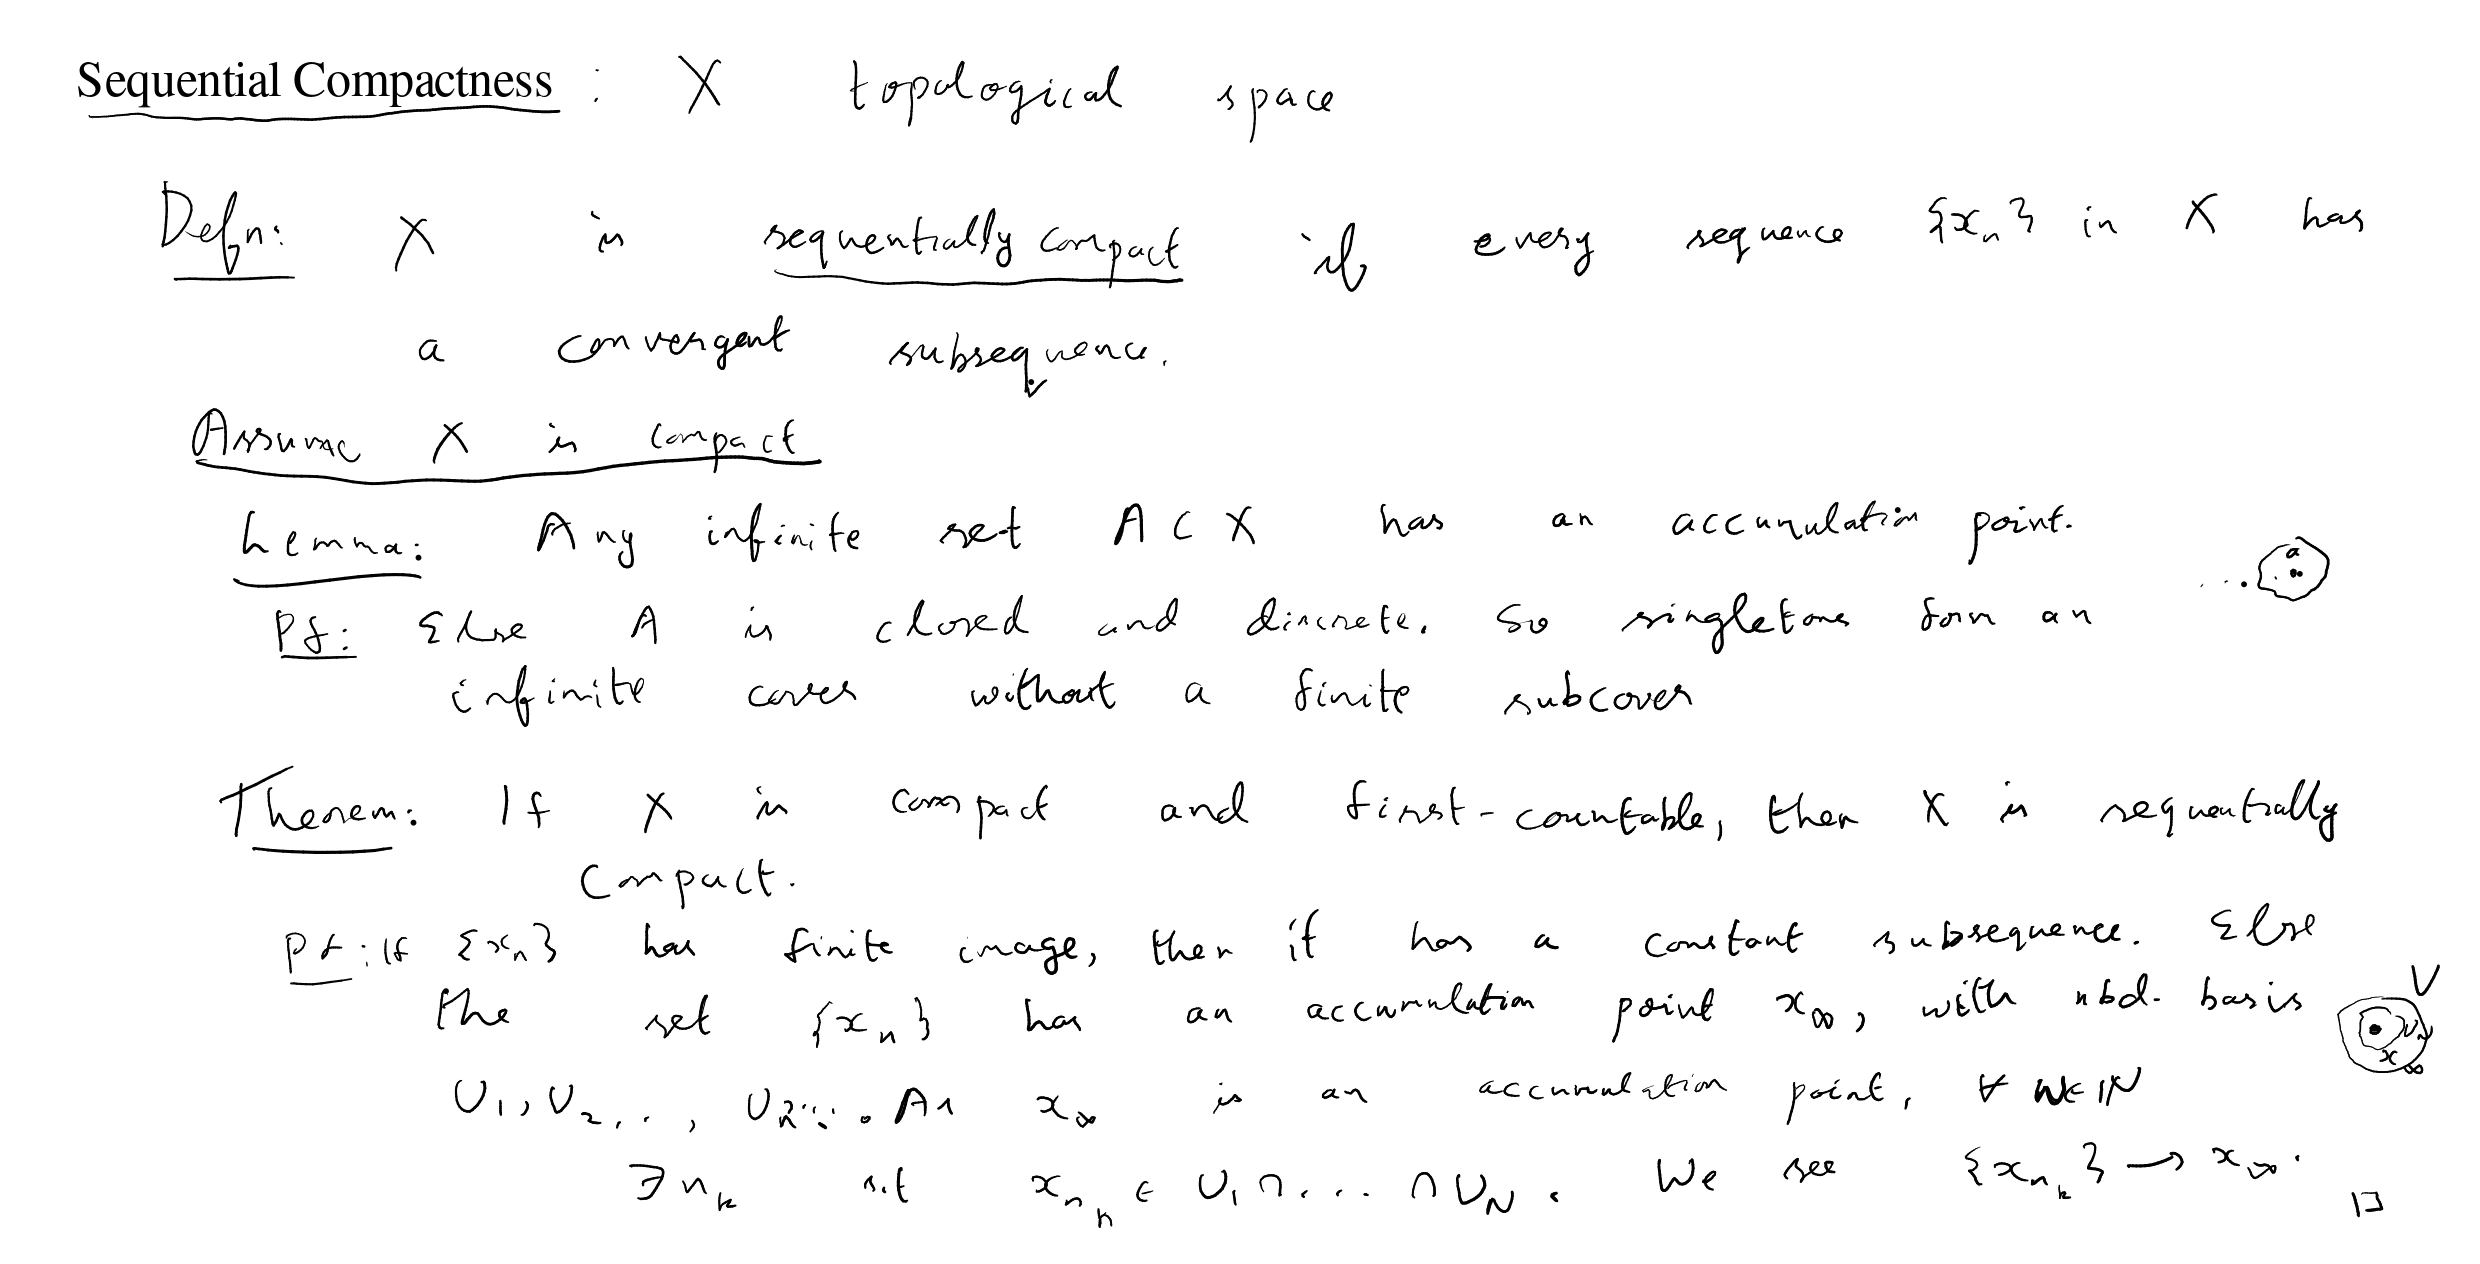 Sequential Compactness : X topological space
Defn: X is sequentially compact if every sequence {xₙ} in X has
a convergent subsequence.
Assume X is compact
Lemma: Any infinite set A ⊂ X has an accumulation point.
a
Pf: Else A is closed and discrete. So singletons form an
infinite cover without a finite subcover
Theorem: If X is compact and first-countable, then X is sequentially
compact.
Pf: If {xₙ} has finite image, then it has a constant subsequence. Else
the set {xₙ} has an accumulation point x∞, with nbd. basis
V
x∞
U₁, U₂, ..., Uₖ... . As x∞ is an accumulation point, ∀ k ∈ ℕ
∃ nₖ s.t xₙₖ ∈ U₁ ∩ ... ∩ U_N. We see {xₙₖ} → x∞.
□